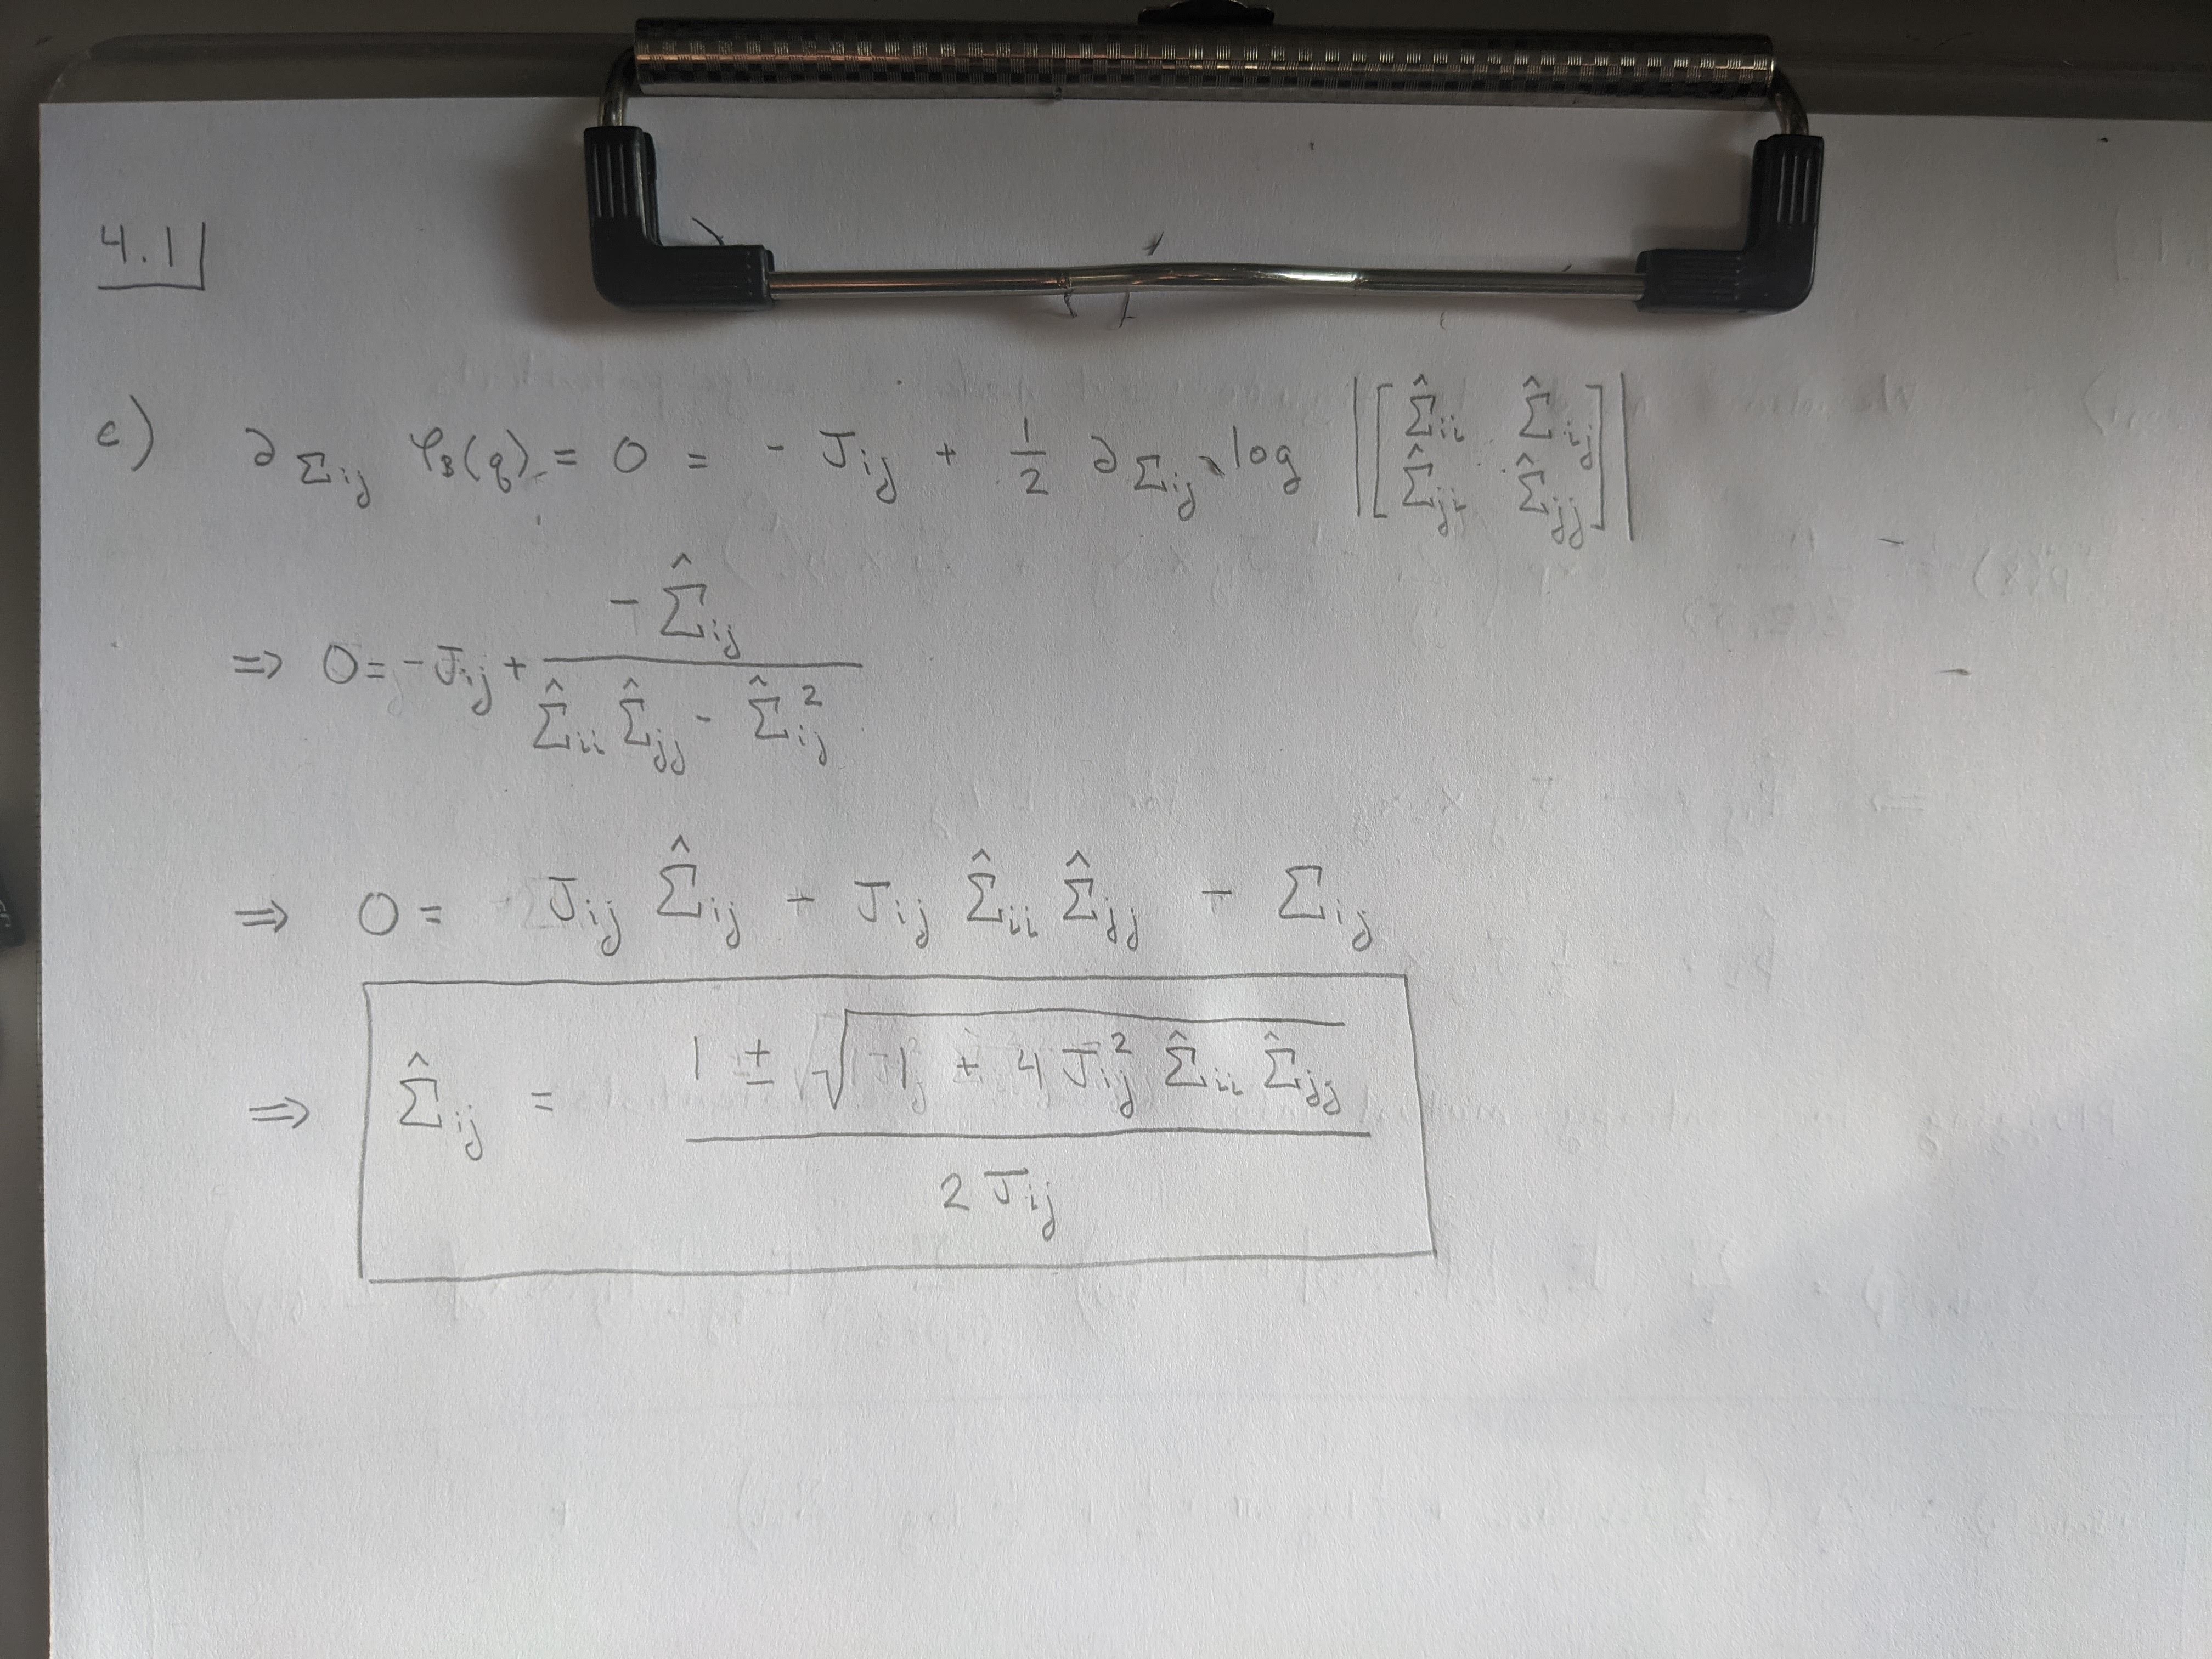 4.1
c) ∂_{Σ_{ij}} φ_B(q) = 0 = - J_{ij} + 1/2 ∂_{Σ_{ij}} log |[Σ̂_{ii} Σ̂_{ij} ; Σ̂_{ji} Σ̂_{jj}]|
⇒ 0 = - J_{ij} + (- Σ̂_{ij}) / (Σ̂_{ii} Σ̂_{jj} - Σ̂_{ij}^2)
⇒ 0 = J_{ij} Σ̂_{ij} - J_{ij} Σ̂_{ii} Σ̂_{jj} - Σ_{ij}
⇒ Σ̂_{ij} = (1 ± √(1 + 4 J_{ij}^2 Σ̂_{ii} Σ̂_{jj})) / (2 J_{ij})